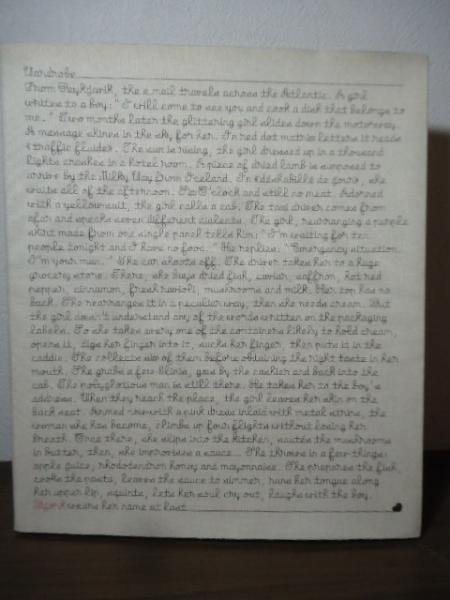 Wardrobe
From Reykjavik, the e.mail travels across the Atlantic. A girl
writes to a boy: "I will come to see you and cook a dish that belongs to
me." Two months later the glittering girl slides down the motorway.
A message shines in the sky for her. In red dot matrix letters it reads
traffic fluide. The sun is rising, the girl dressed up in a thousand
lights crashes in a hotel room. A piece of dried lamb is supposed to
arrive by the Milky Way from Iceland. In déshabillé de jours, she
waits all of the afternoon. O'clock and still no meat. Adorned
with a yellow suit, the girl calls a cab. The taxi driver comes from
afar and speaks seven different dialects. The girl, rearranging a purple
skirt made from one single panel tells him: "I'm waiting for ten
people tonight and I have no food." He replies: "Emergency situation.
I'm your man." The car shoots off. The driver takes her to a huge
grocery store. There, she buys dried fish, caviar, saffron, hot red
pepper, cinnamon, fresh ravioli, mushrooms and milk. Her top has no
back. She rearranges it in a peculiar way, then she needs cream. But
the girl doesn't understand any of the words written on the packaging
labels. So she takes every one of the containers likely to hold cream,
opens it, digs her finger into it, sucks her finger, then puts it in the
caddie. She collects six of them before obtaining the right taste in her
mouth. She grabs a few blinis, goes by the cashier and back into the
cab. The polyglorious man is still there. He takes her to the boy's
address. When they reach the place, the girl leaves her skin on the
back seat. Armed now with a pink dress inlaid with metal strins, the
woman she has become, climbs up four flights without losing her
breath. Once there, she slips into the kitchen, sautés the mushrooms
in butter, then, she improvises a sauce... She throws in a few things:
apple juice, rhododendron honey and mayonnaise. She prepares the fish,
cooks the pasta, leaves the sauce to simmer, runs her tongue along
her upper lip, squints, lets her soul cry out, laughs with the boy.
Björk wears her name at last